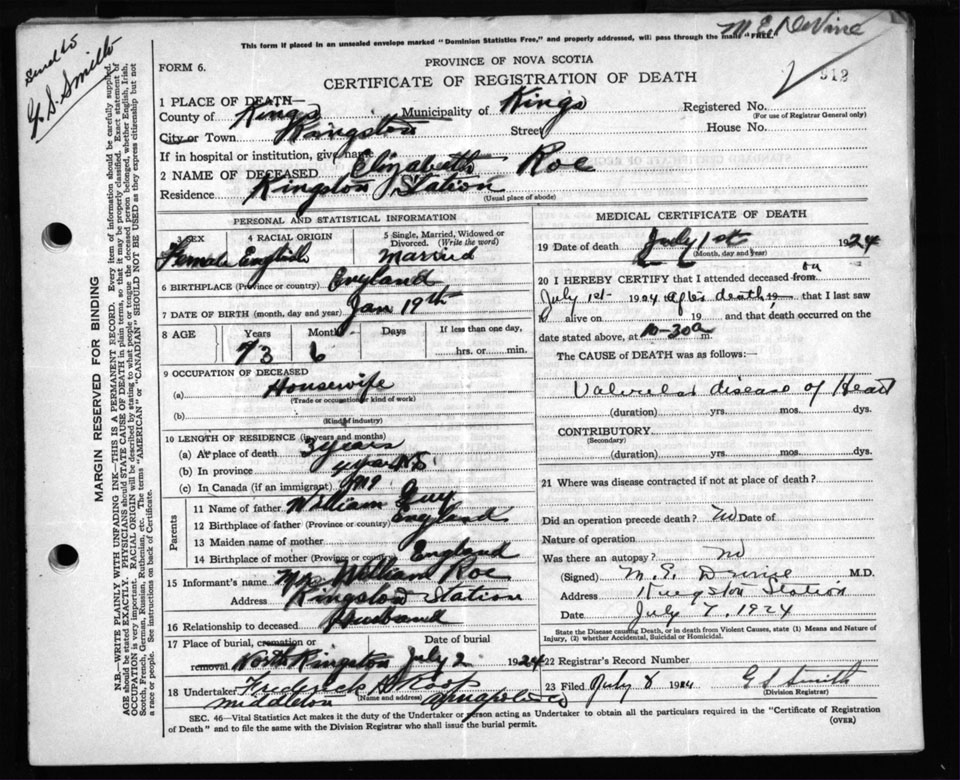 M. E. DeVine
Send to
G. S. Smith
This form if placed in an unsealed envelope marked "Dominion Statistics Free," and properly addressed, will pass through the mails "FREE."
PROVINCE OF NOVA SCOTIA
FORM 6.
CERTIFICATE OF REGISTRATION OF DEATH
912
1 PLACE OF DEATH—
County of Kings Municipality of Kings Registered No.
(For use of Registrar General only)
City or Town Kingston Street House No.
If in hospital or institution, give name
2 NAME OF DECEASED Elizabeth Roe
Residence Kingston Station
(Usual place of abode)
PERSONAL AND STATISTICAL INFORMATION
3 SEX 4 RACIAL ORIGIN 5 Single, Married, Widowed or Divorced. (Write the word)
Female English Married
6 BIRTHPLACE (Province or country) England
7 DATE OF BIRTH (month, day and year) Jan 19th
8 AGE Years Months Days If less than one day,
73 6 hrs. or min.
9 OCCUPATION OF DECEASED
(a) Housewife
(Trade or occupation or kind of work)
(b)
(Kind of industry)
10 LENGTH OF RESIDENCE (in years and months)
(a) At place of death 3 years
(b) In province 4 years
(c) In Canada (if an immigrant) 1919
Parents
11 Name of father William Guy
12 Birthplace of father (Province or country) England
13 Maiden name of mother
14 Birthplace of mother (Province or country) England
15 Informant's name William Roe
Address Kingston Station
16 Relationship to deceased Husband
17 Place of burial, cremation or removal North Kingston
Date of burial July 2 1924
18 Undertaker Frederick
(Name and address)
Middleton Annapolis Co
MEDICAL CERTIFICATE OF DEATH
19 Date of death July 1st 1924
(Month, day and year)
20 I HEREBY CERTIFY that I attended deceased from on
July 1st 1924 after death, 19 that I last saw
h alive on 19 and that death occurred on the
date stated above, at 10-30a m.
The CAUSE of DEATH was as follows:
Valvular disease of Heart
(duration) yrs. mos. dys.
CONTRIBUTORY
(Secondary)
(duration) yrs. mos. dys.
21 Where was disease contracted if not at place of death?
Did an operation precede death? No Date of
Nature of operation
Was there an autopsy? No
(Signed) M. E. DeVine M.D.
Address Kingston Station
Date July 7, 1924
State the Disease causing Death, or in death from Violent Causes, state (1) Means and Nature of Injury, (2) whether Accidental, Suicidal or Homicidal.
22 Registrar's Record Number
23 Filed July 8 1924 G S Smith
(Division Registrar)
SEC. 46—Vital Statistics Act makes it the duty of the Undertaker or person acting as Undertaker to obtain all the particulars required in the "Certificate of Registration
of Death" and to file the same with the Division Registrar who shall issue the burial permit.
(OVER)
MARGIN RESERVED FOR BINDING
N.B.—WRITE PLAINLY WITH UNFADING INK—THIS IS A PERMANENT RECORD. Every item of information should be carefully supplied.
AGE should be stated EXACTLY. PHYSICIANS should STATE CAUSE OF DEATH in plain terms, so that it may be properly classified. Exact statement of
OCCUPATION is very important. RACIAL ORIGIN will be described by stating to what people or tongue the deceased person belonged, whether English, Irish,
Scotch, French, German, Russian, Ruthenian, etc. The terms "AMERICAN" or "CANADIAN" SHOULD NOT BE USED as they express citizenship but not
a race or people. See instructions on back of Certificate.